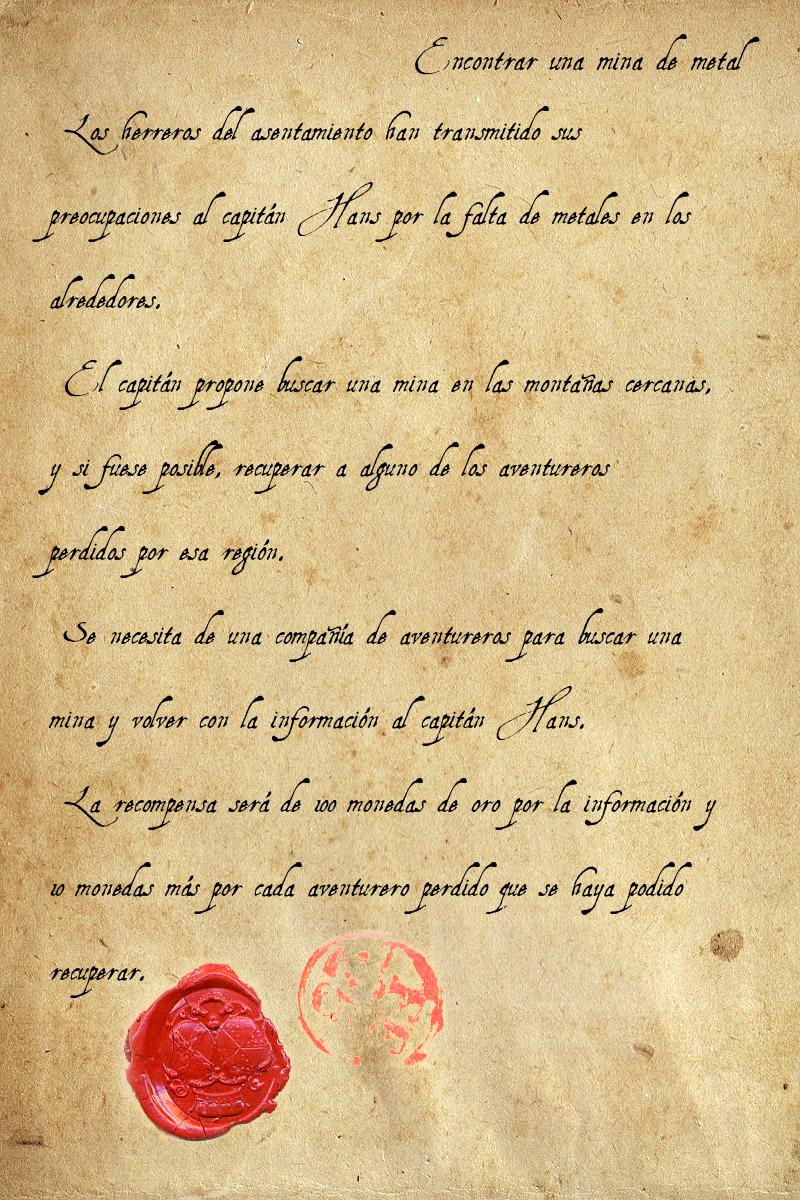 Encontrar una mina de metal
Los herreros del asentamiento han transmitido sus
preocupaciones al capitán Hans por la falta de metales en los
alrededores.
El capitán propone buscar una mina en las montañas cercanas,
y si fuese posible, recuperar a alguno de los aventureros
perdidos por esa región.
Se necesita de una compañía de aventureros para buscar una
mina y volver con la información al capitán Hans.
La recompensa será de 100 monedas de oro por la información y
10 monedas más por cada aventurero perdido que se haya podido
recuperar.